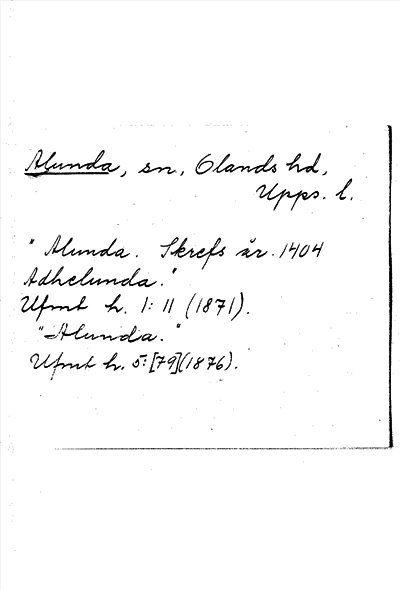 Alunda, sn, Olands hd,
Upps. l.
"Alunda. Skrefs år 1404
Adhelunda."
Ufmt h. 1: 11 (1871).
"Alunda."
Ufmt h. 5: [79] (1876).